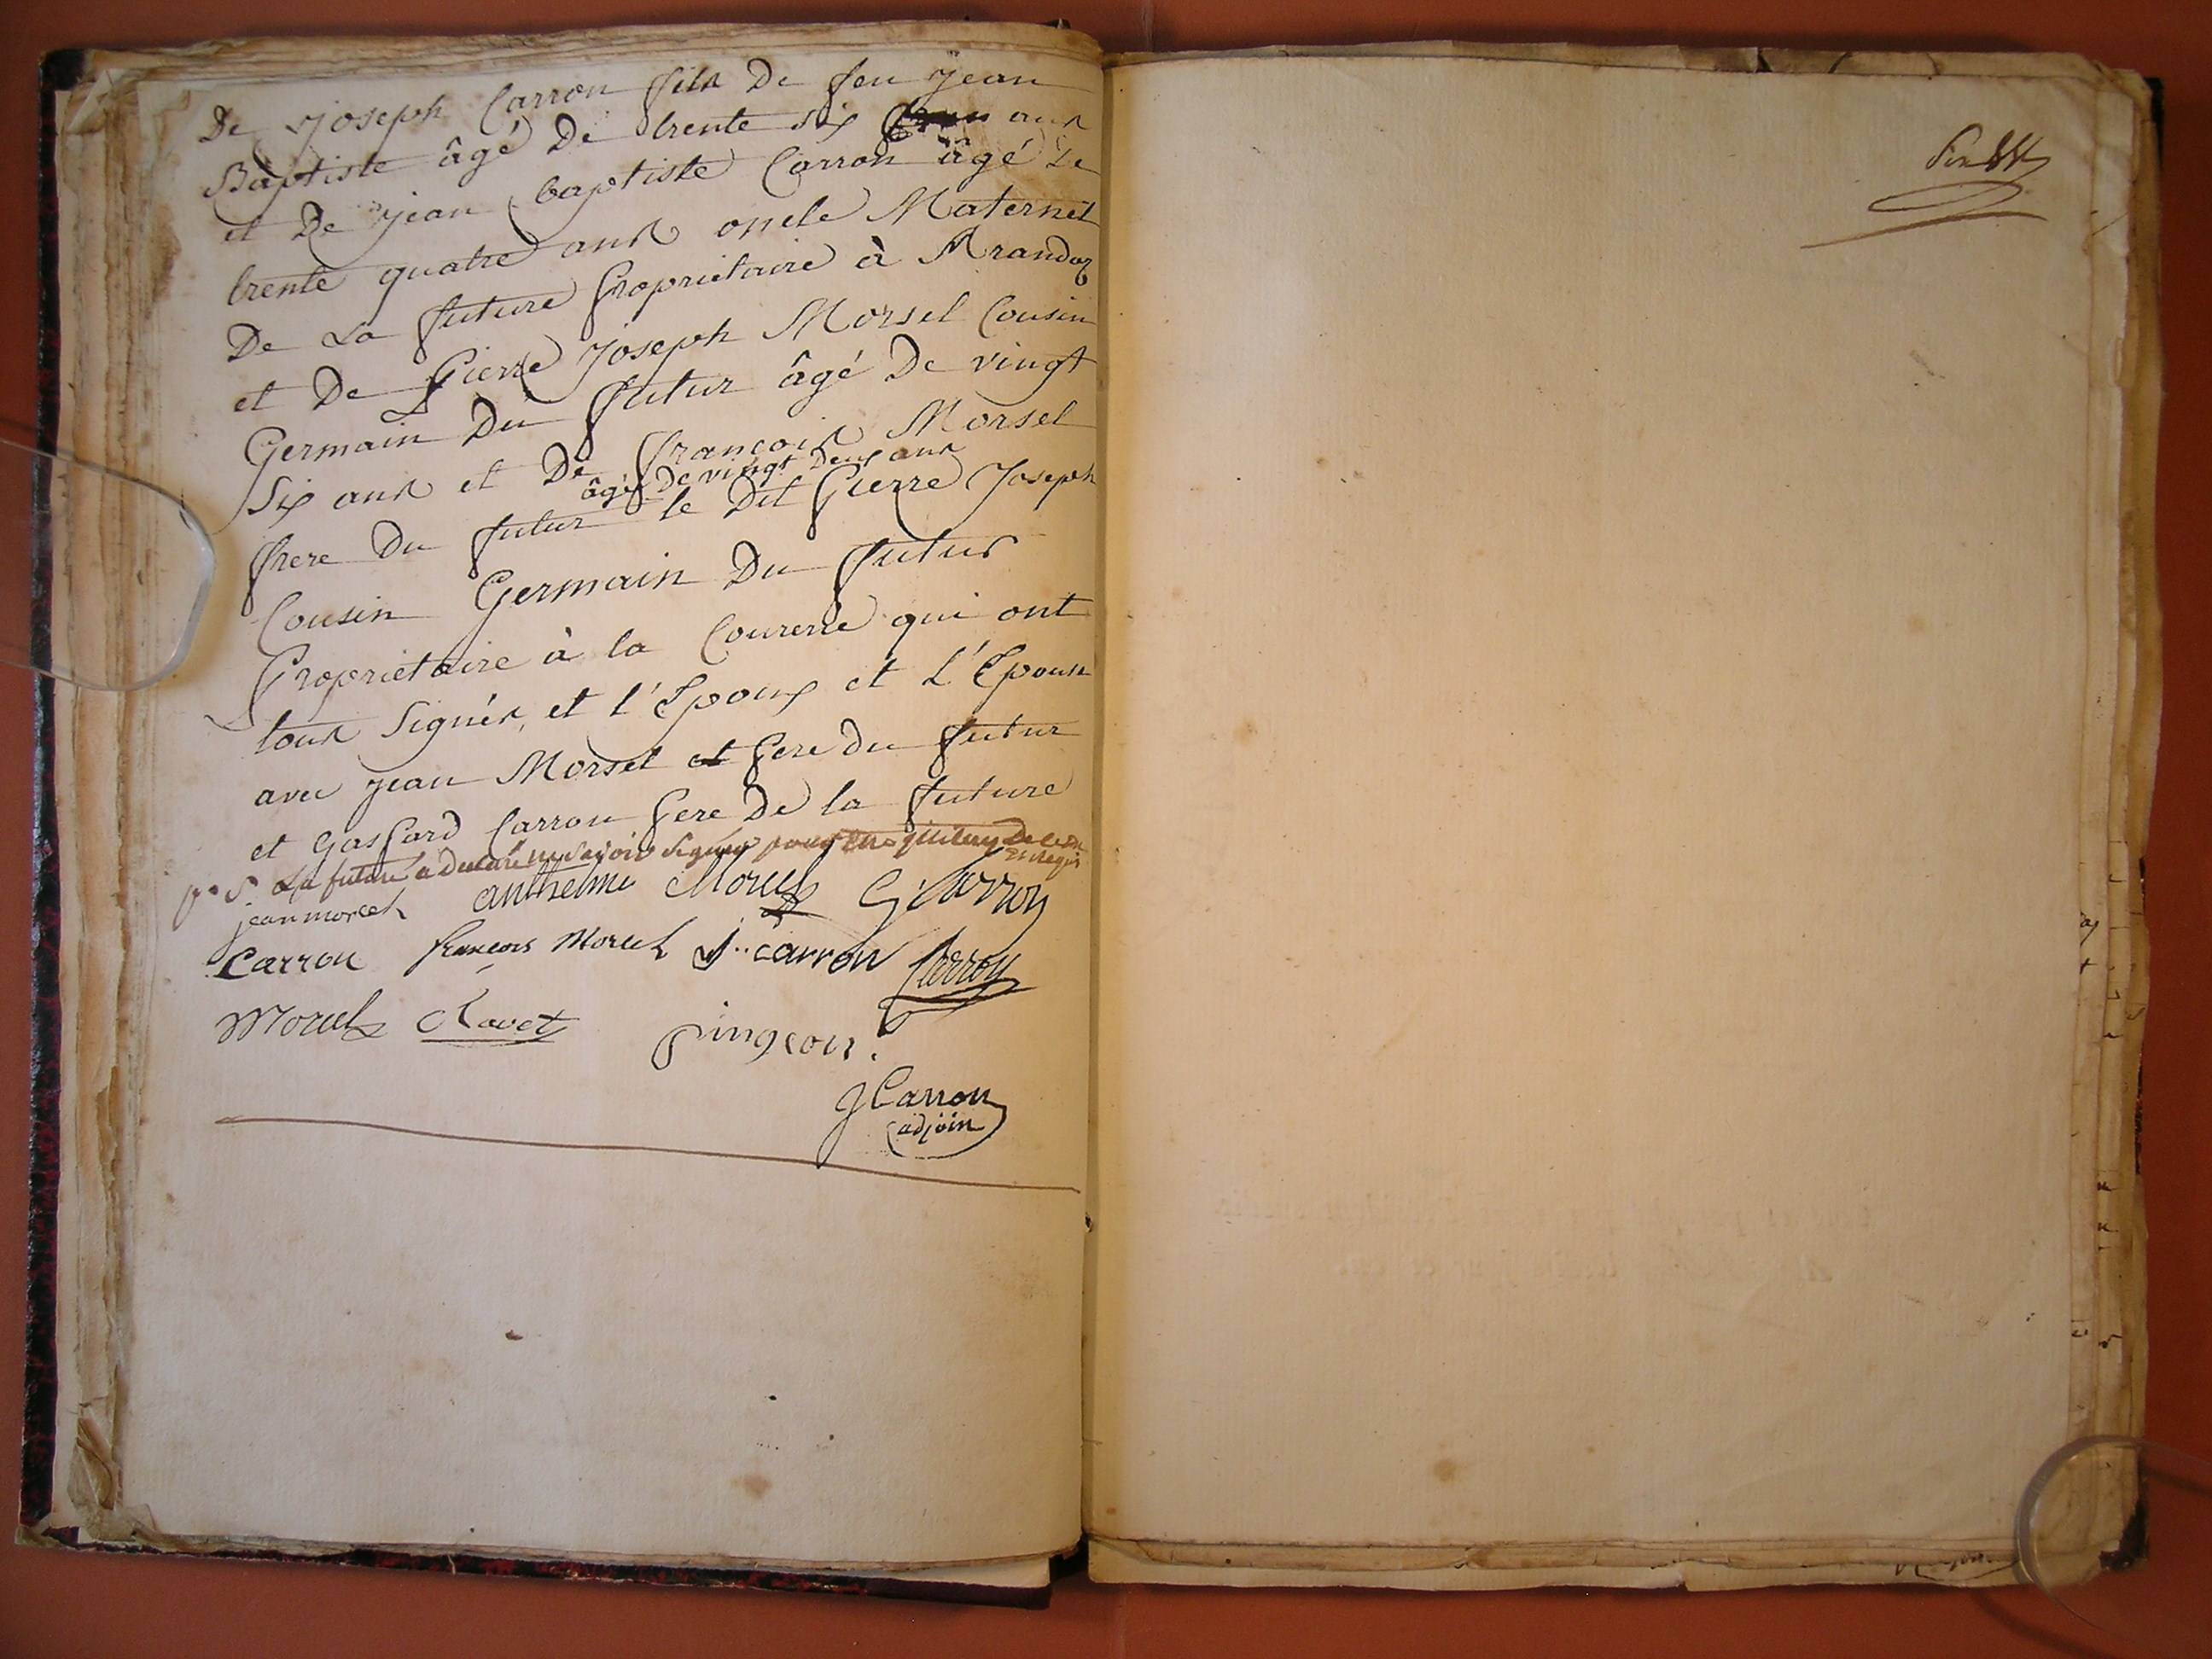 De Joseph Carron fils De feu jean
Baptiste âgé De trente six ans
et De jean baptiste Carron âgé De
trente quatre ans oncle Maternel
De La future Proprietaire à Arandaz
et De Pierre Joseph Morsel Cousin
Germain Du futur âgé De vingt
Six ans et De françois Morsel
âgé De vingt Deux ans
frere Du futur le Dit Pierre Joseph
Cousin Germain Du futur
Proprietaire à la Courerie qui ont
tous Signés, et l'Epoux et L'Epouse
avec jean Morsel et Pere du futur
et Gaspard Carron Pere De la future
La future a declaré ne savoir signer
jean morcel anthelme Morcel G Carron
Carron françois Morcel J. Carron Carron
Morcel Chavet pingeon.
J Carron
adjoin